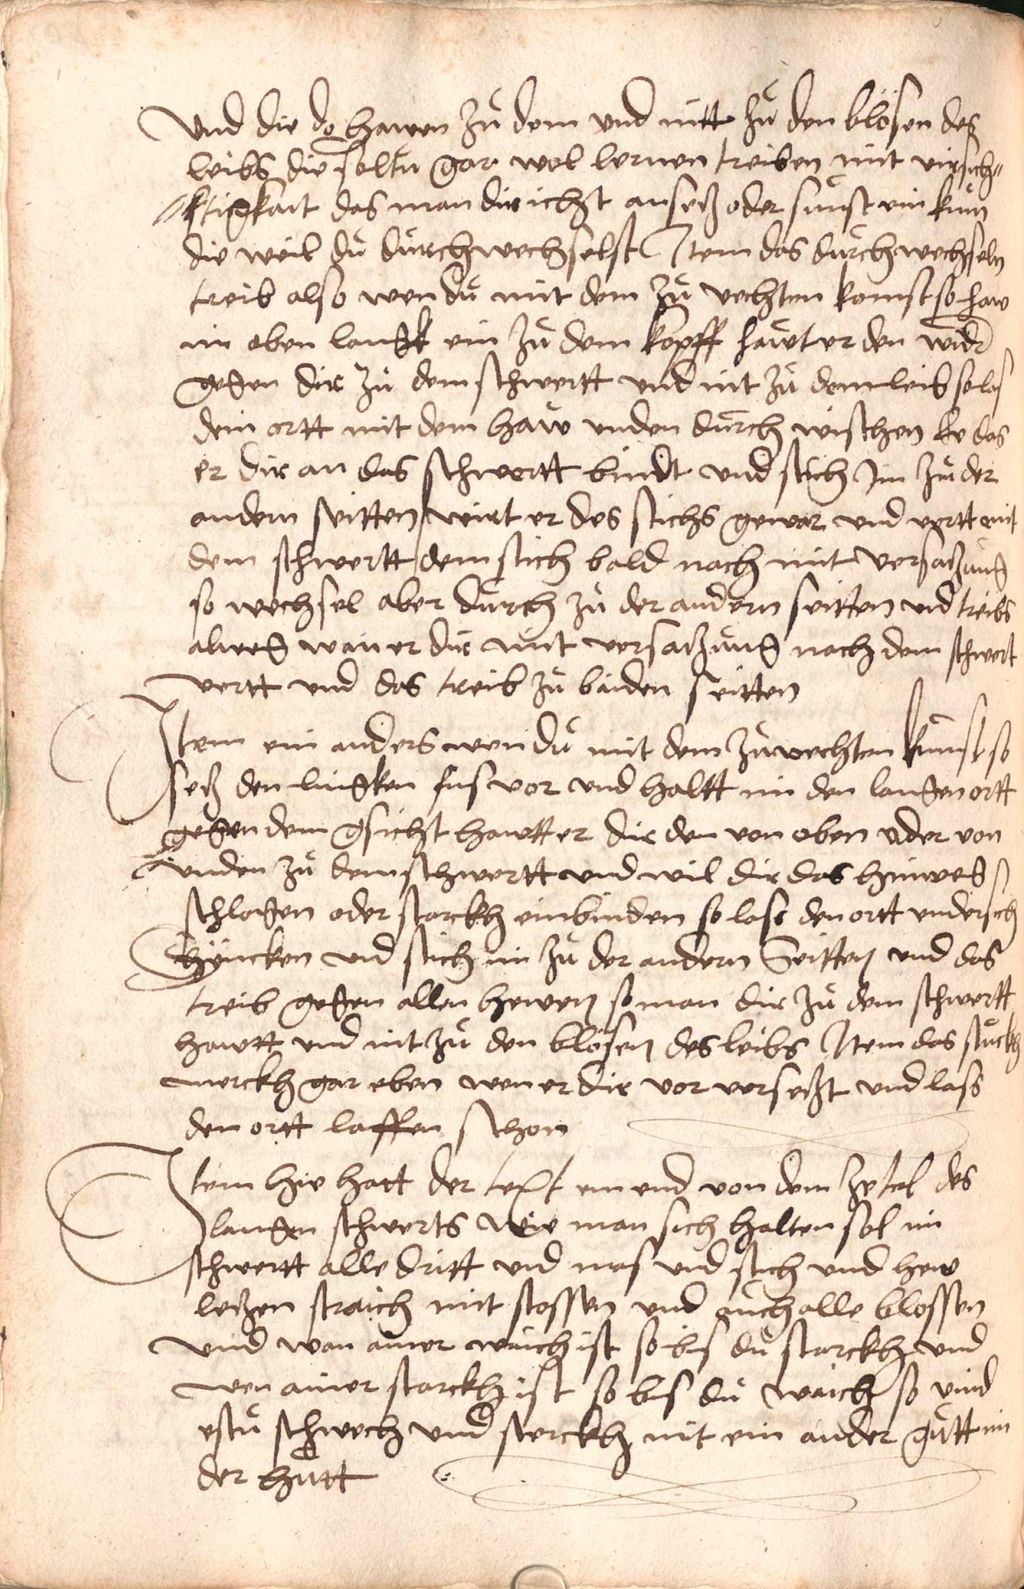 Und die do hawen zů dem und nitt zů den blösen des
leibs die soltu gar wol lernen treiben mit virsich=
//ktigkait das man dir icht an setz oder sunst ein kum
die weil dů dürchwechselst Item das durchwechseln
treib also wen dů mit dem zů vechten komst so haw
im oben langk ein zů dem kopff hawt er den widr
gegen dir zů dem schwertt und nit zů dem leib so las
dein ortt mit dem haw unden dürch wischen ee das
er dir an das schwertt bindt und stich Im zů der
andern seitten wirt er des stichs gewar und vertt mit
dem schwertt dem stich bald nach mit versatzung
so wechsel aber dürch zů der andern seitten und treibs
alweg wan er dir mit versatzung nach dem schwert
vertt und das treib zů baiden seitten
Item ein anders wen dů mit dem zůvechten kumst so
setz den lingken fus vor und haltt im den langen ortt
gegen dem gsicht hawtt er dir den von oben oder von
unden zů dem schwertt und wil dir das hinweg
schlagen oder starckh einbinden so lass den ortt undersich
sincken und stich im zů der andern seitten und das
treib gegen allen hewen so man dir zů dem schwertt
hawtt und nit zů den blösen des leibs Item das stuckh
merckh gar eben wen er dir vor versetzt und lass
den ortt laffen schon
Item hie hatt der text ein end von dem zetel des
langen schwerts wie man sich halten sol im
schwertt alle dritt und mas und stich und hew
letzen straich mit stossen und auch alle blossen
und wan ainer waich ist so bis dů starckh und
wen ainer starckh ist so bis dů waich so vind
estu schwech und sterckh mit ein ander gutt in
der hůtt